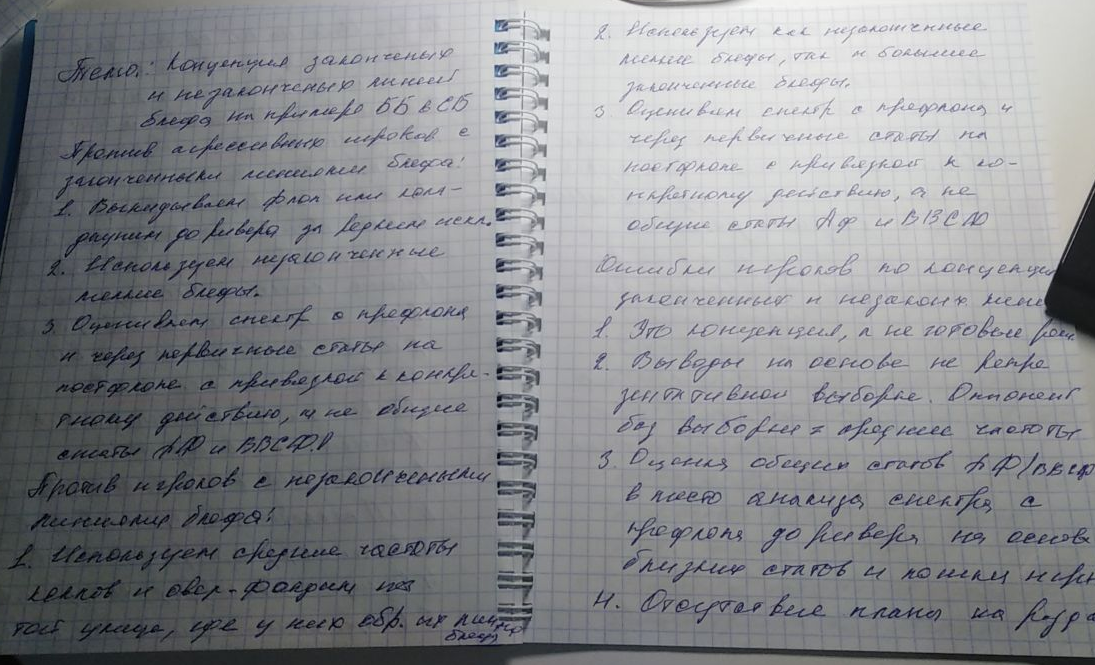 Тема: Концепция законченых
и незаконченых линий
блефа на примере ББ в СБ
Против агрессивных игроков с
законченными линиями блефа:
1. Выкидываем флоп или колл-
дауним до ривера за редким искл.
2. Используем незаконченные
мелкие блефы.
3. Оцениваем спектр с префлопа
и через первичные статы на
постфлопе с привязкой к конкре-
тному действию, а не общие
статы АФ и ВВСФ.
Против игроков с незаконченными
линиями блефа:
1. Используем средние частоты
коллов и овер-фолдим на
той улице, где у них обр. их линия
блефа
2. Используем как незаконченные
мелкие блефы, так и большие
законченные блефы.
3 Оцениваем спектр с префлопа и
через первичные статы на
постфлопе с привязкой к ко-
нкретному действию, а не
общие статы АФ и ВВСФ
Ошибки игроков по концепции
законченных и незаконч. лини
1. Это концепция, а не готовые реш
2. Выводы на основе не репре
зентативной выборке. Оппонент
без выборки = средние частоты
3. Оценка общих статов АФ/ВВСФ
вместо анализа спектра с
префлопа до ривера на основе
близких статов и
4. Отсутствие плана на разда